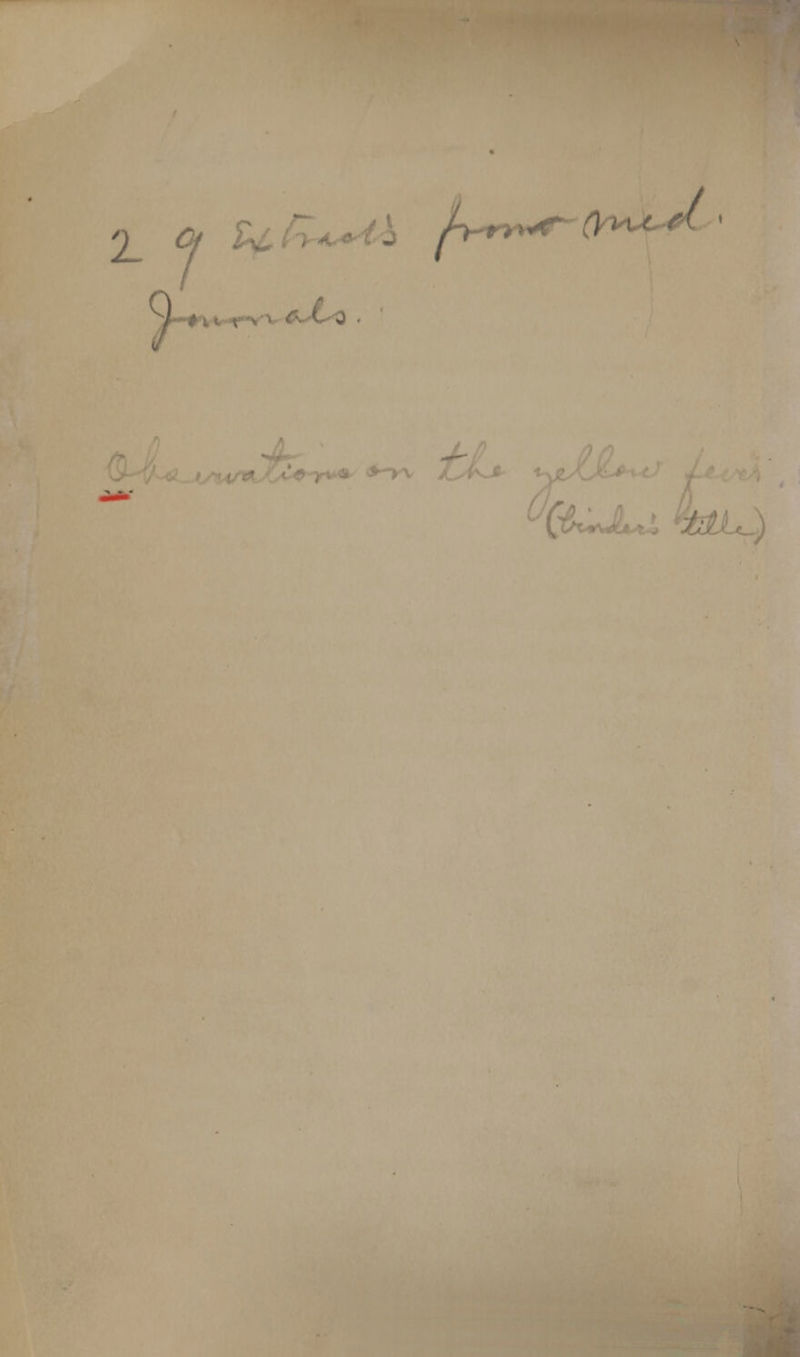 2 9 Extracts from med.
Journals.
Observations on the yellow fever.
(binder's title)